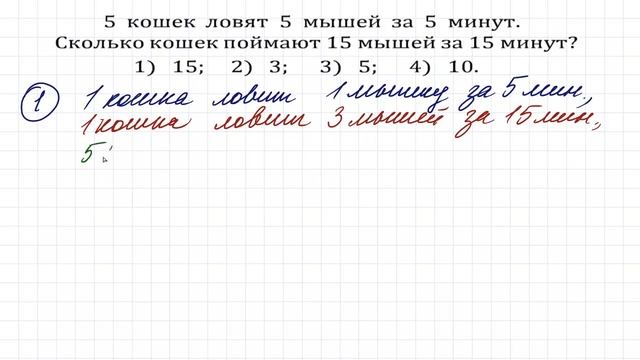 5 кошек ловят 5 мышей за 5 минут.
Сколько кошек поймают 15 мышей за 15 минут?
1) 15; 2) 3; 3) 5; 4) 10.
1 1 кошка ловит 1 мышку за 5 мин,
1 кошка ловит 3 мышей за 15 мин,
5